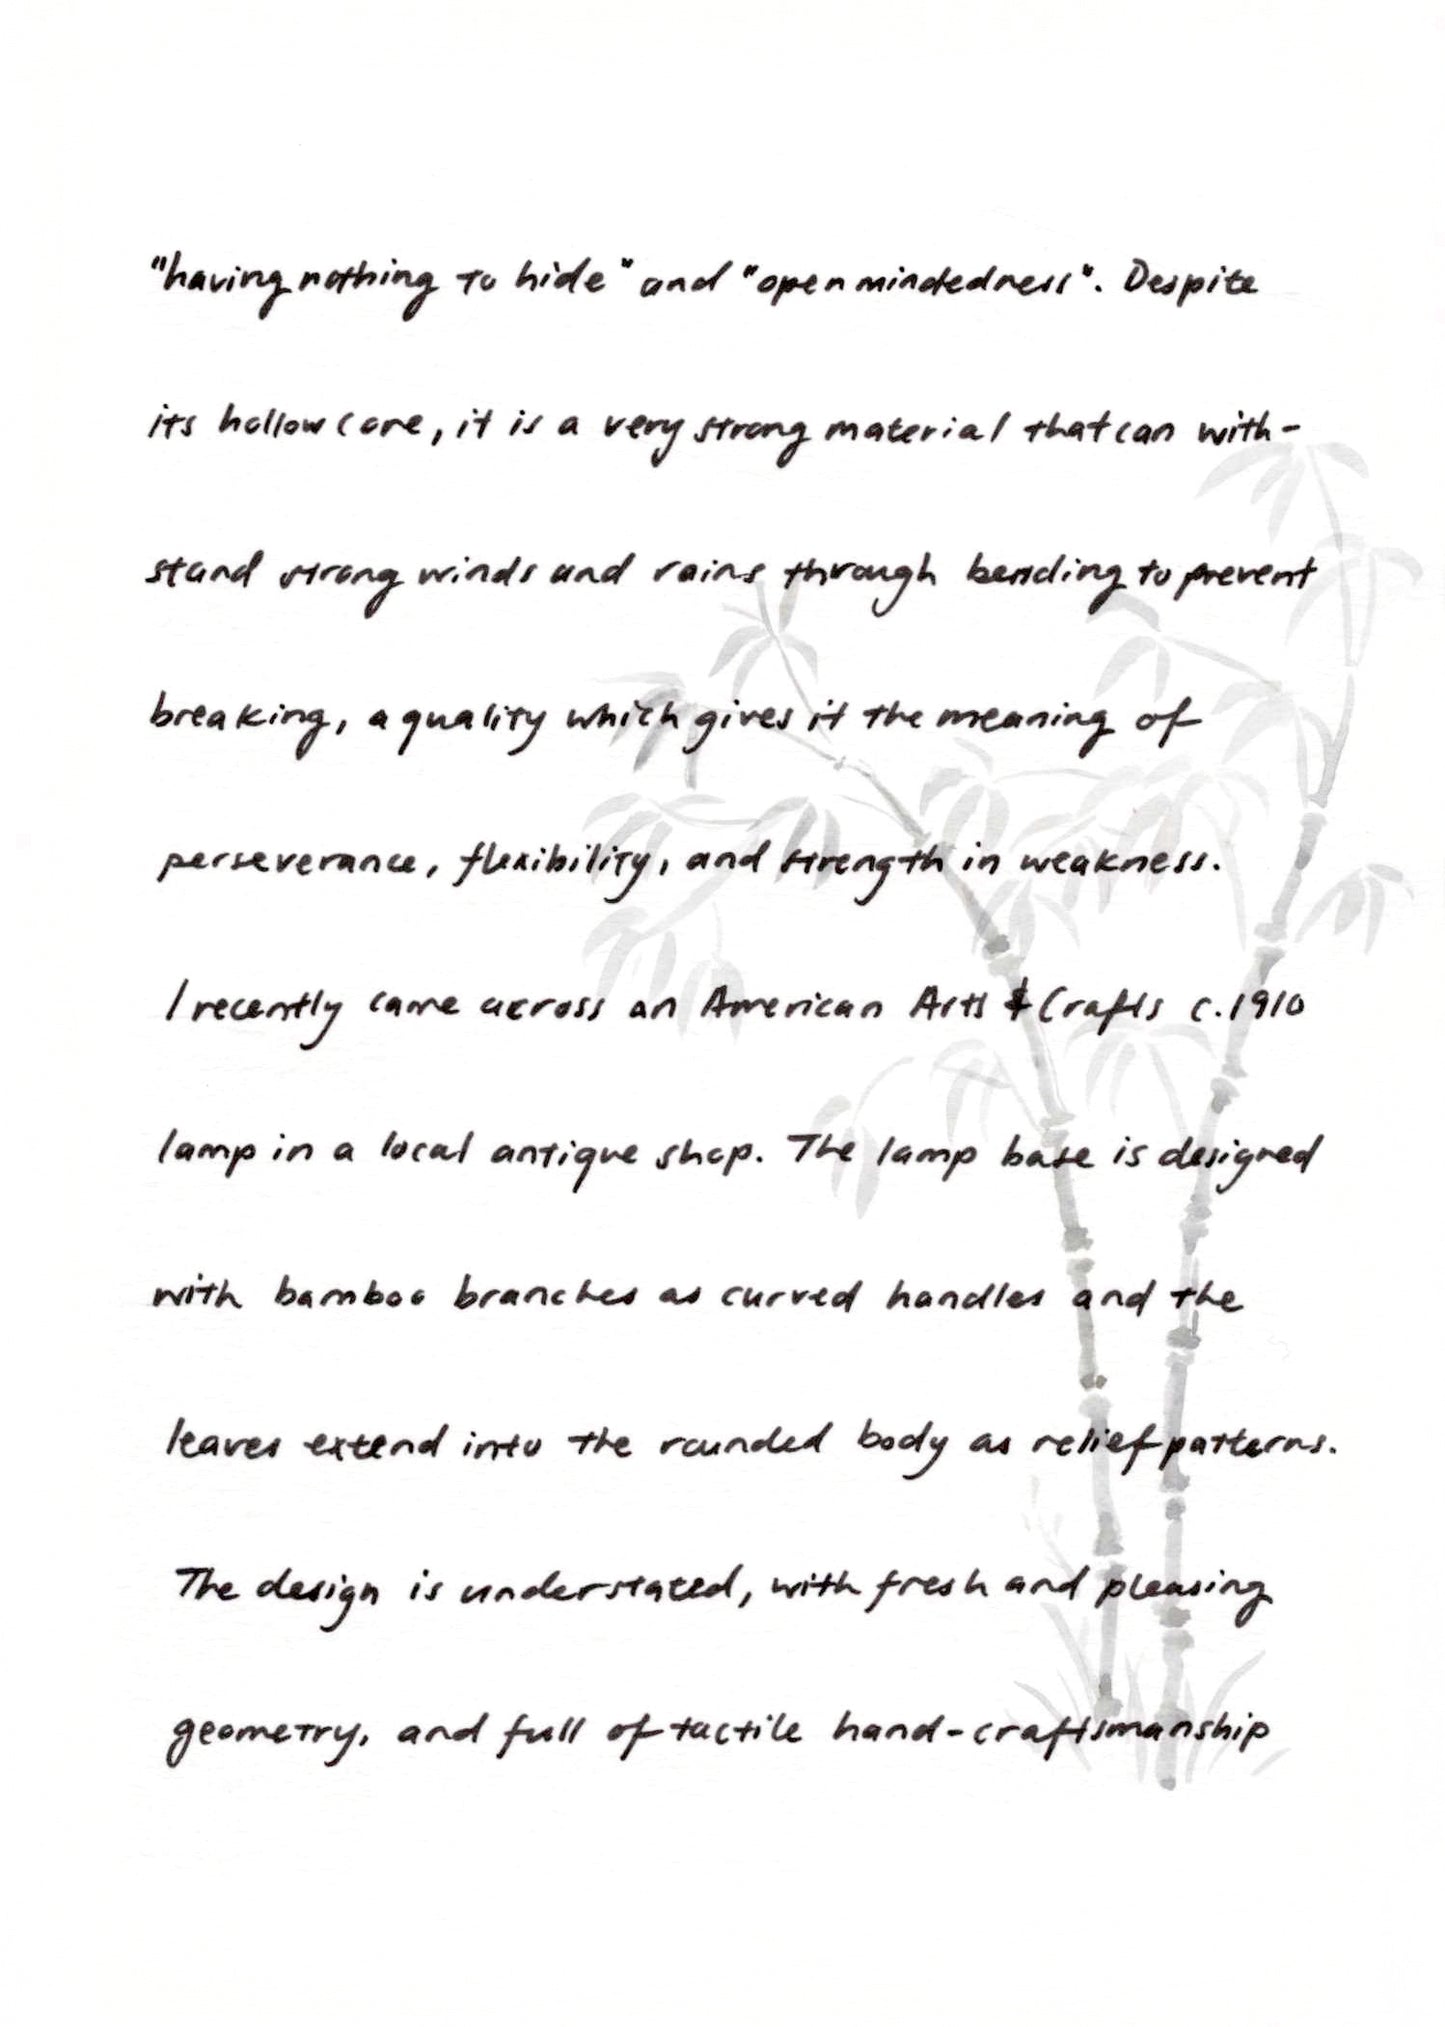 "having nothing to hide" and "open mindedness". Despite
its hollow core, it is a very strong material that can with-
stand strong winds and rains through bending to prevent
breaking, a quality which gives it the meaning of
perseverance, flexibility, and strength in weakness.
I recently came across an American Arts & Crafts c.1910
lamp in a local antique shop. The lamp base is designed
with bamboo branches as curved handles and the
leaves extend into the rounded body as relief patterns.
The design is understated, with fresh and pleasing
geometry, and full of tactile hand-craftsmanship